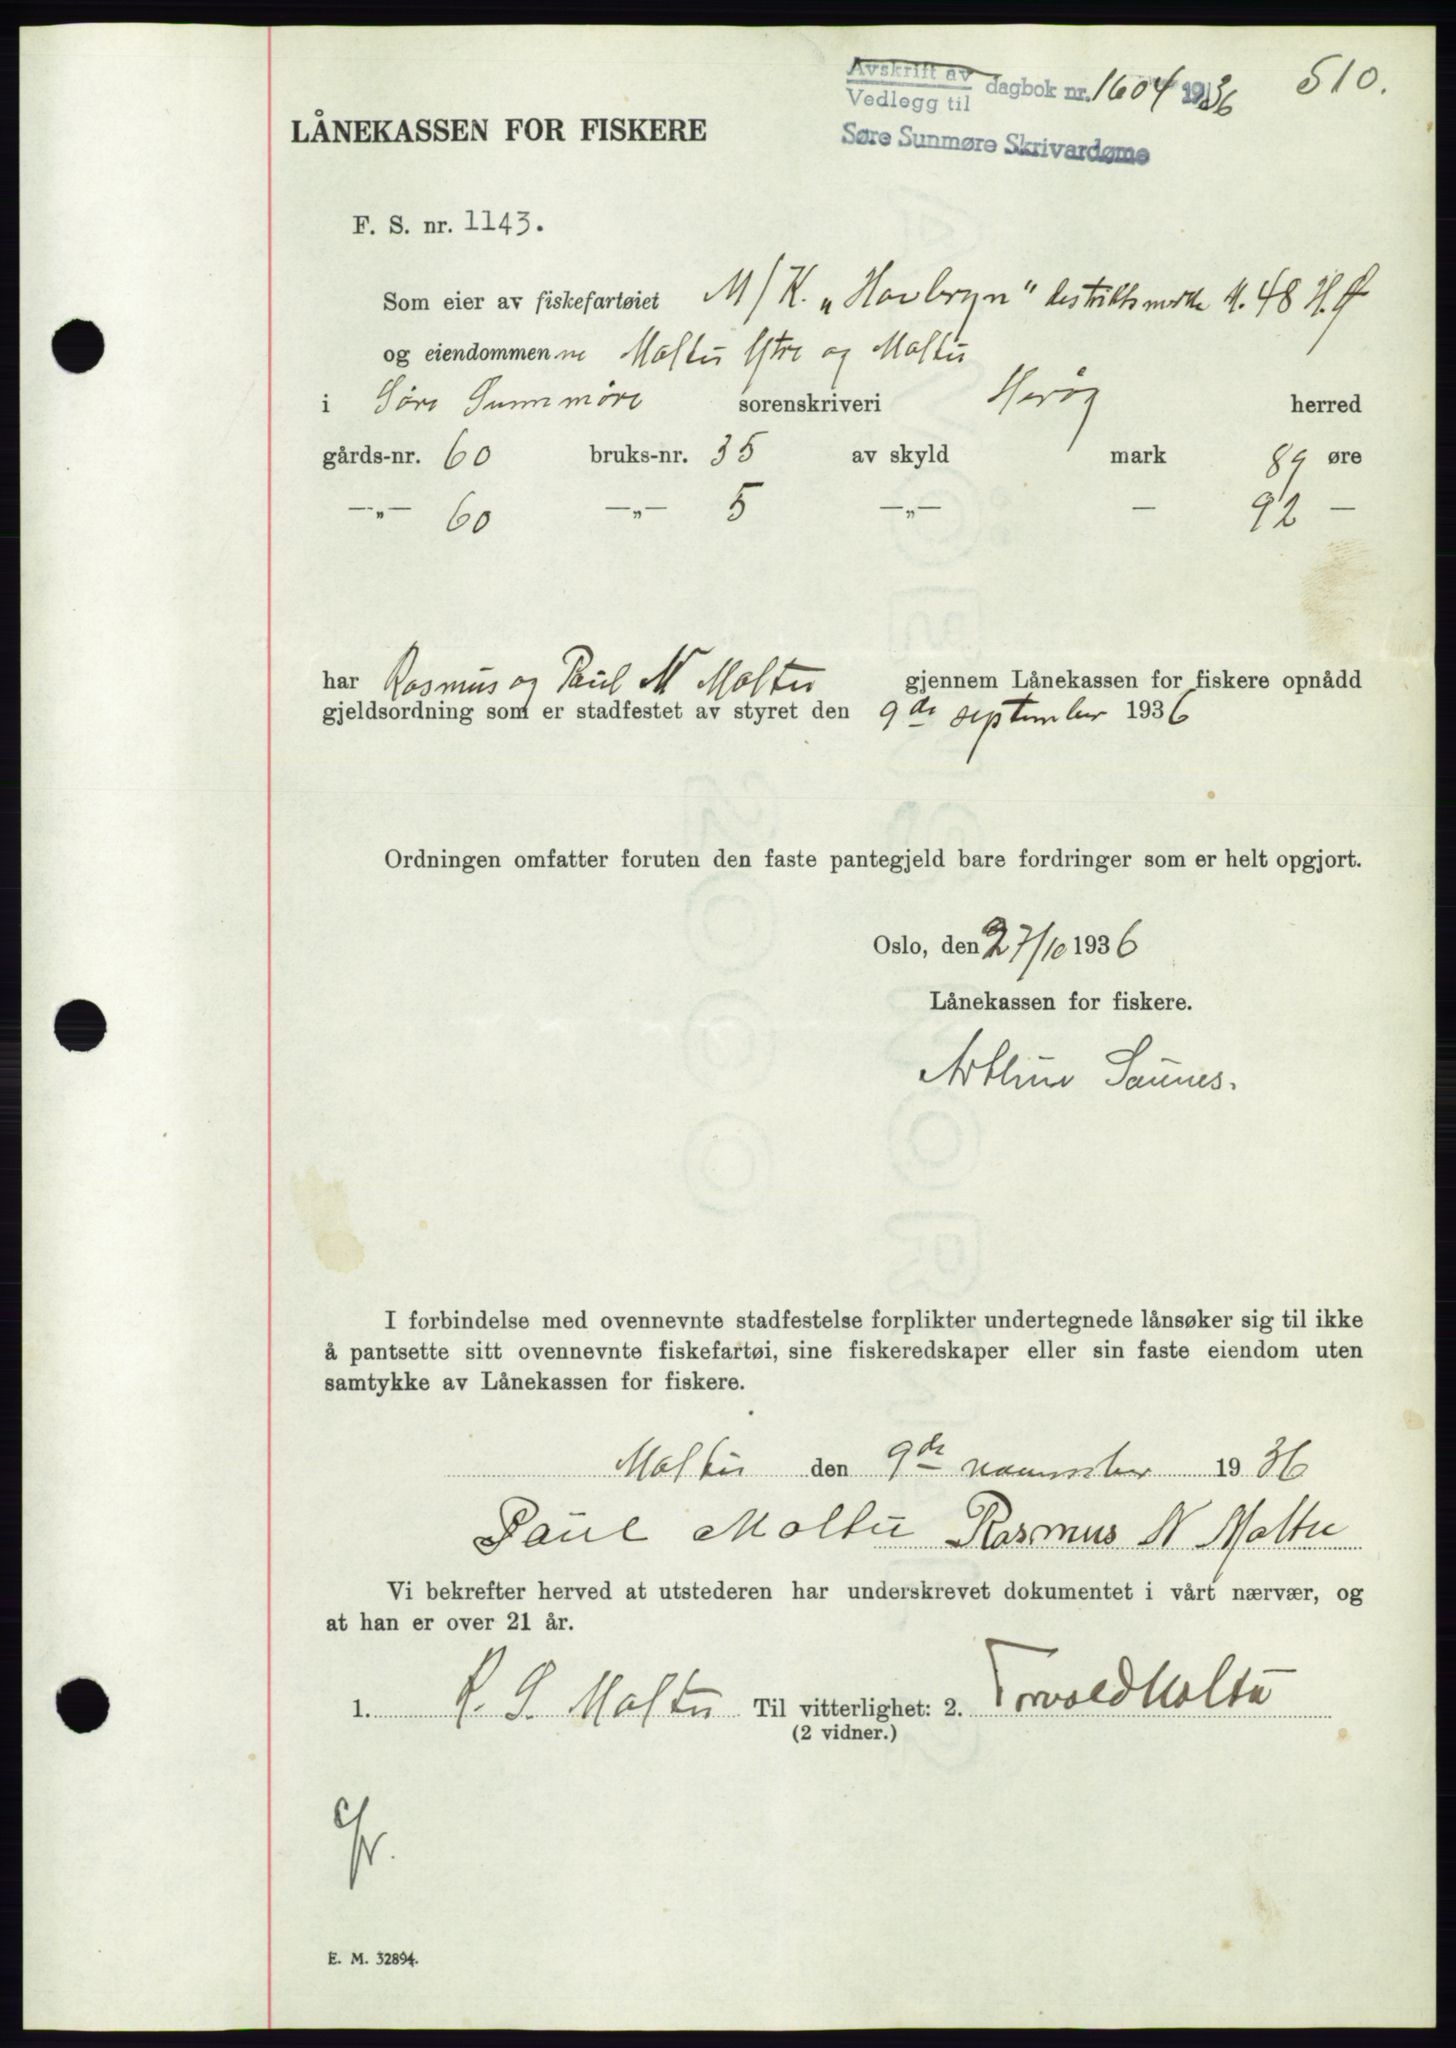 510.
Avskrift av
Vedlegg til dagbok nr. 1604 1936
Søre Sunmøre Skrivardøme
LÅNEKASSEN FOR FISKERE
F. S. nr. 1143.
Som eier av fiskefartøiet M/K. „Havbryn" distriktsmerke M. 48 H.Ø
og eiendommene Moltu Ytre og Moltu
i Søre Sunnmøre sorenskriveri Herøy herred
gårds-nr. 60 bruks-nr. 35 av skyld mark 89 øre
—„— 60 —„— 5 —„— — 92 —
har Rasmus og Paul N Moltu gjennem Lånekassen for fiskere opnådd
gjeldsordning som er stadfestet av styret den 9de september 1936
Ordningen omfatter foruten den faste pantegjeld bare fordringer som er helt opgjort.
Oslo, den 27/10 1936
Lånekassen for fiskere.
Arthur Saunes.
I forbindelse med ovennevnte stadfestelse forplikter undertegnede lånsøker sig til ikke
å pantsette sitt ovennevnte fiskefartøi, sine fiskeredskaper eller sin faste eiendom uten
samtykke av Lånekassen for fiskere.
Moltu den 9de november 1936
Paul Moltu Rasmus N Moltu
Vi bekrefter herved at utstederen har underskrevet dokumentet i vårt nærvær, og
at han er over 21 år.
1. R. S. Moltu Til vitterlighet: 2. Torvald Moltu
(2 vidner.)
E. M. 32894.